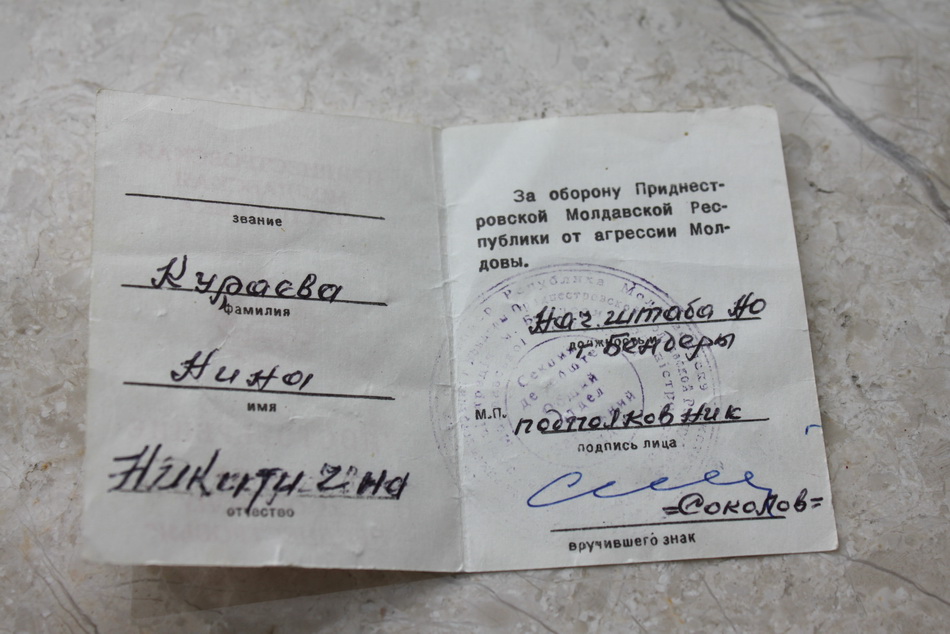 звание
Кураева
фамилия
Нина
имя
Никитична
отчество
За оборону Приднест-
ровской Молдавской Рес-
публики от агрессии Мол-
довы.
Нач. штаба НО
должность
г. Бендеры
М.П.
подполковник
подпись лица
=Соколов=
вручившего знак